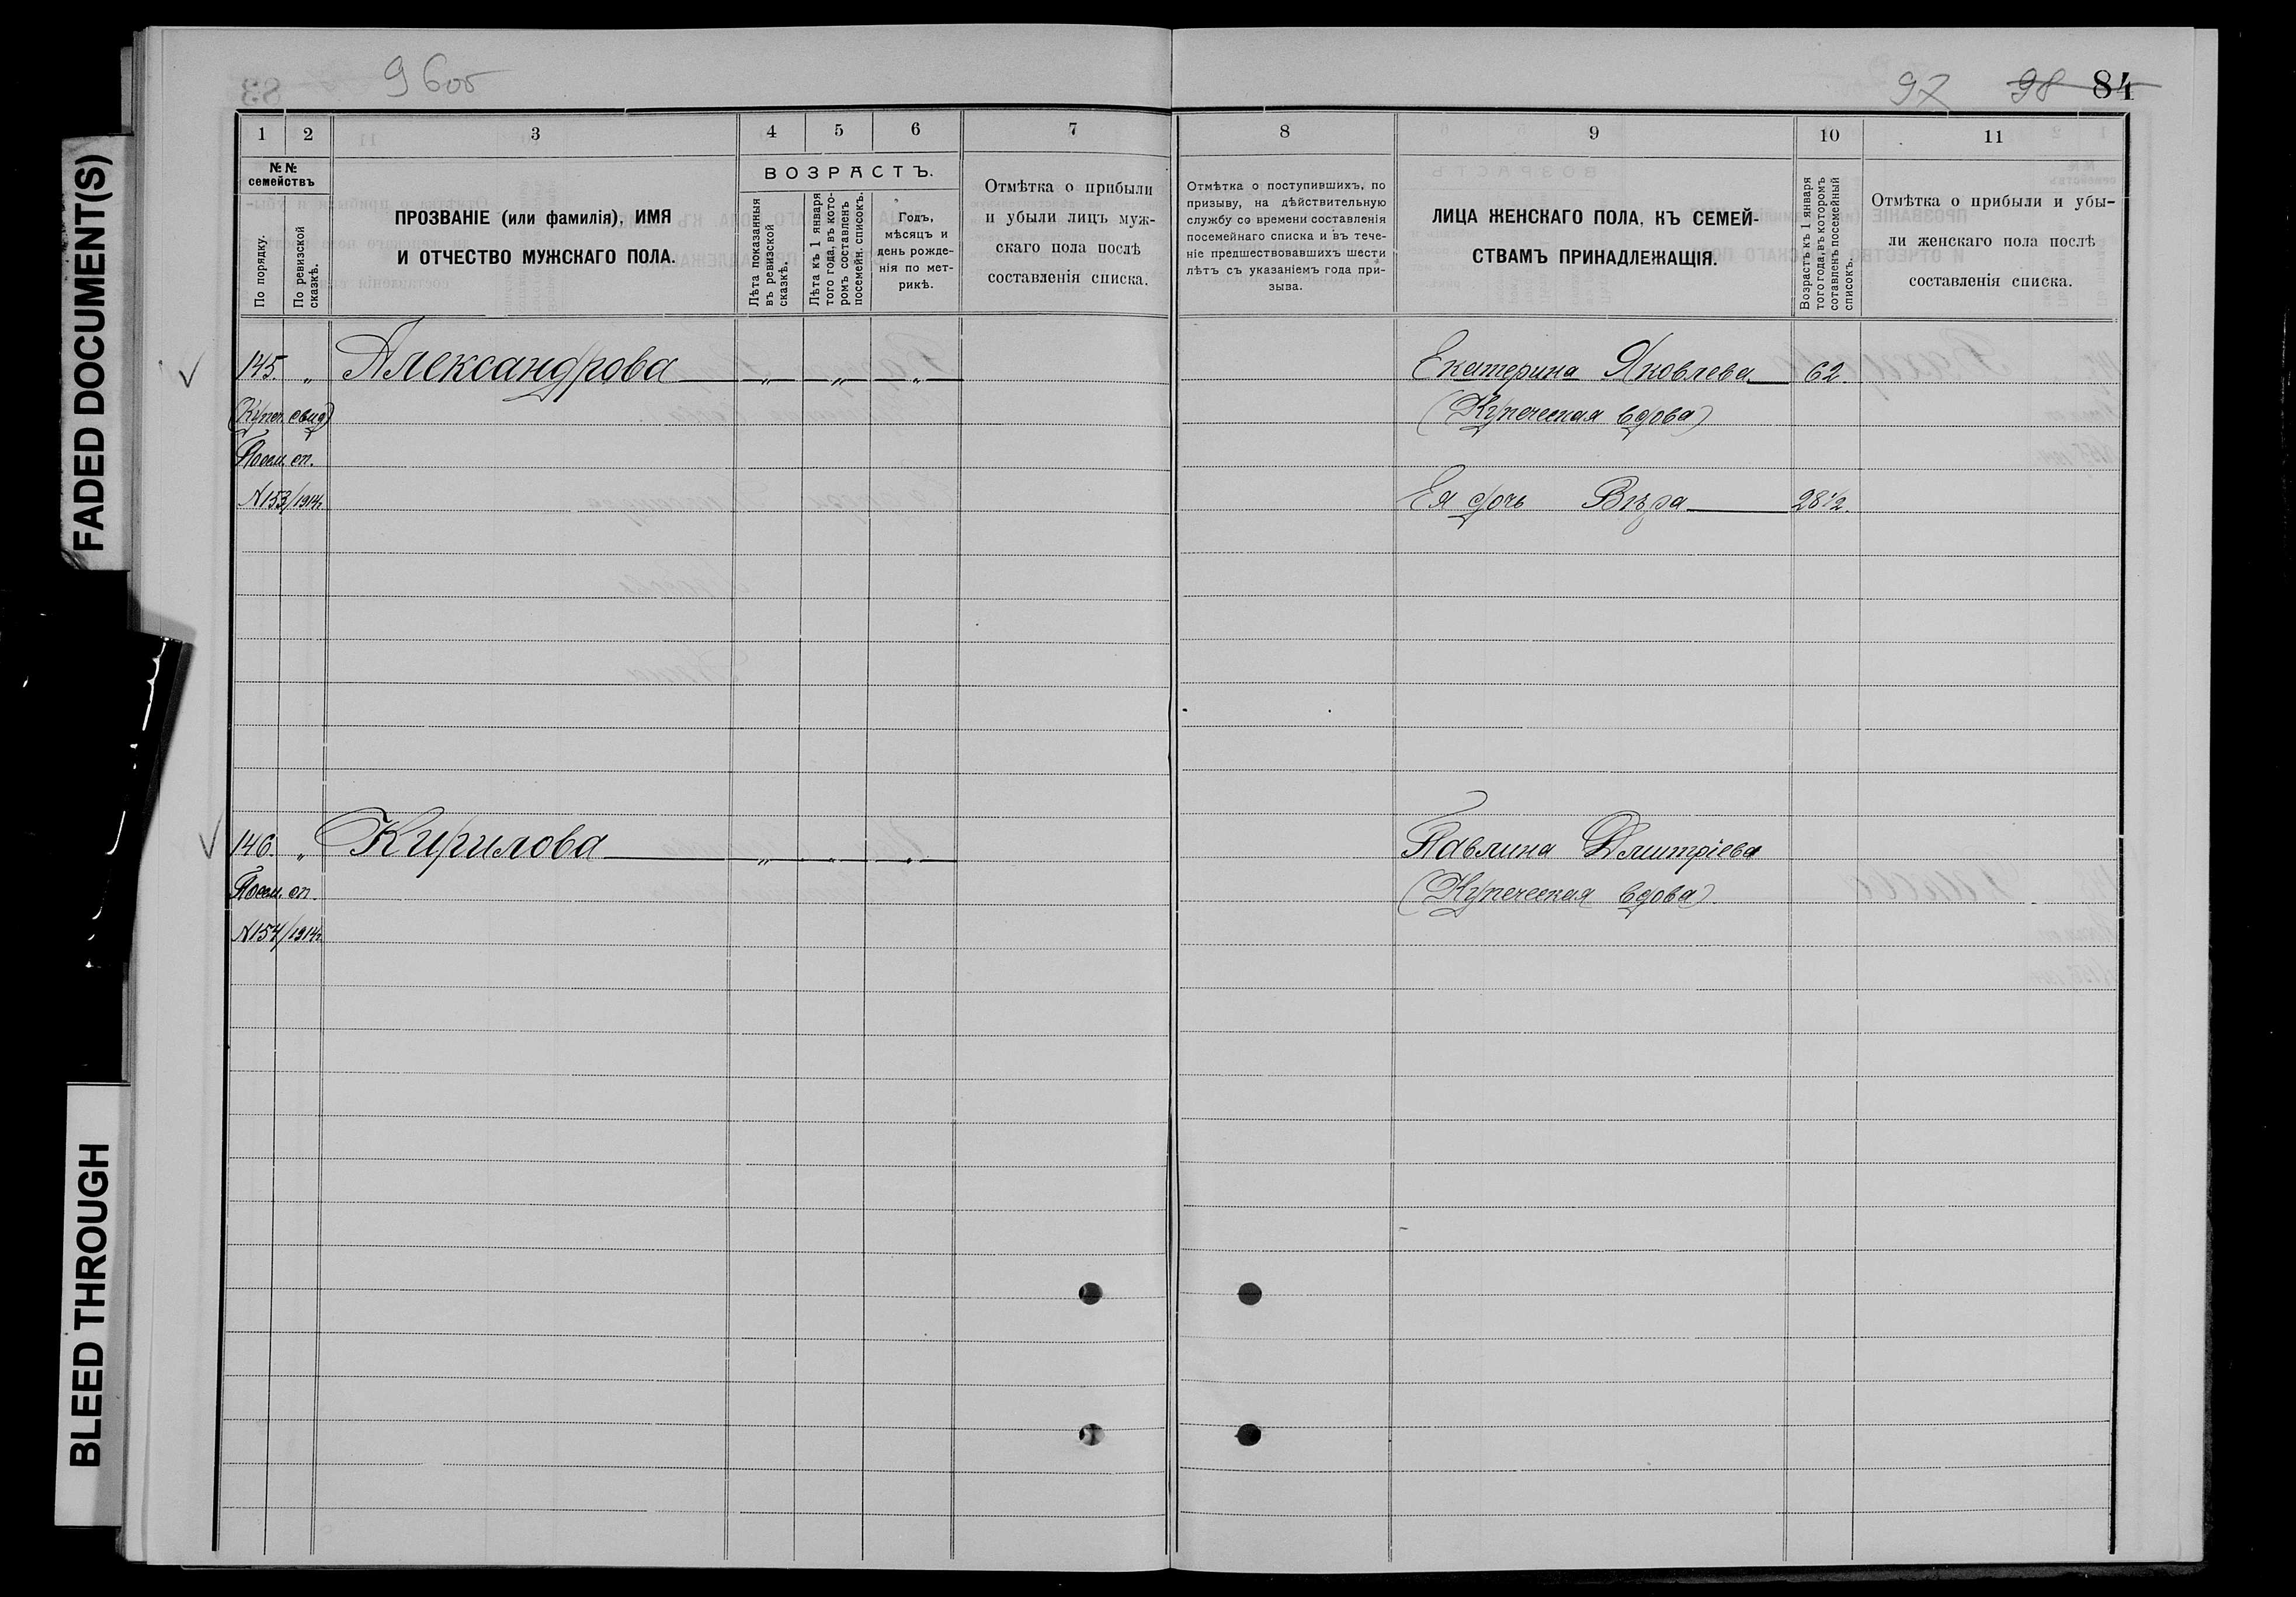 9 боб
97 98 84
FADED DOCUMENT(S)
BLEED THROUGH
1 2 3 4 5 6 7 8 9 10 11
№№ семействъ
По порядку.
По ревизской сказкѣ.
ПРОЗВАНІЕ (или фамилія), ИМЯ
И ОТЧЕСТВО МУЖСКАГО ПОЛА.
ВОЗРАСТЪ.
Лѣта показанныя
въ ревизской
сказкѣ.
Лѣта къ 1 января
того года, въ кото-
ромъ составленъ
посемейн. списокъ.
Годъ,
мѣсяцъ и
день рожде-
нія по мет-
рикѣ.
Отмѣтка о прибыли
и убыли лицъ муж-
скаго пола послѣ
составленія списка.
Отмѣтка о поступившихъ, по
призыву, на дѣйствительную
службу со времени составленія
посемейнаго списка и въ тече-
ніе предшествовавшихъ шести
лѣтъ съ указаніемъ года при-
зыва.
ЛИЦА ЖЕНСКАГО ПОЛА, КЪ СЕМЕЙ-
СТВАМЪ ПРИНАДЛЕЖАЩІЯ.
Возрастъ къ 1 января
того года, въ которомъ
сотавленъ посемейный
списокъ.
Отмѣтка о прибыли и убы-
ли женскаго пола послѣ
составленія списка.
145. „ Александрова „ „ „ Екатерина Яковлева 62.
(Купеч. свид) (Купеческая вдова)
Посем. сп.
№153/1914г. Ея дочь Вѣра 28 1/2.
146. „ Кирилова „ „ „ Павлина Дмитріева
Посем. сп. (Купеческая вдова).
№154/1914г.